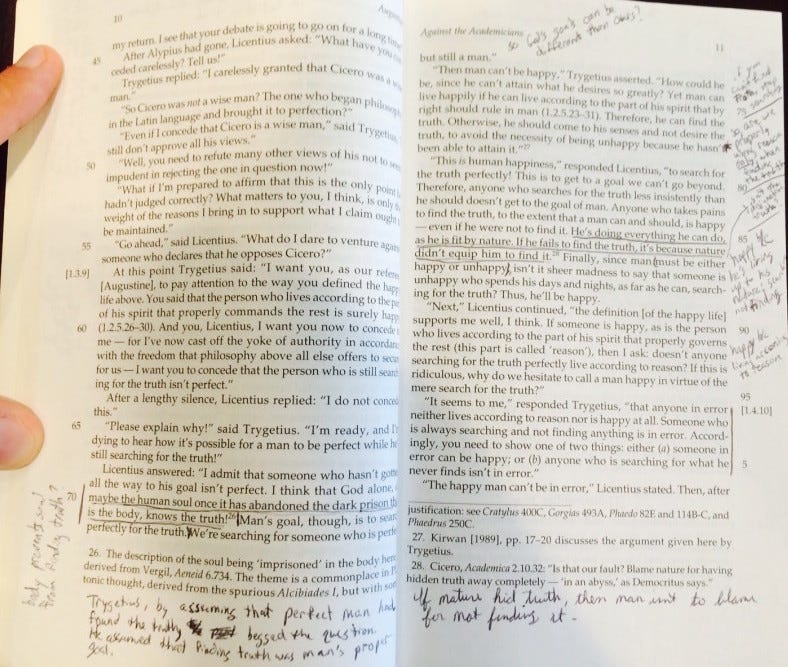 10
Augus
my return. I see that your debate is going to go on for a long time
45
After Alypius had gone, Licentius asked: "What have you con
ceded carelessly? Tell us!"
Trygetius replied: "I carelessly granted that Cicero was a wi
man."
"So Cicero was not a wise man? The one who began philosoph
in the Latin language and brought it to perfection?"
"Even if I concede that Cicero is a wise man," said Trygetius,
still don't approve all his views."
50
"Well, you need to refute many other views of his not to seem
impudent in rejecting the one in question now!"
"What if I'm prepared to affirm that this is the only point
hadn't judged correctly? What matters to you, I think, is only th
weight of the reasons I bring in to support what I claim ought
be maintained."
55
"Go ahead," said Licentius. "What do I dare to venture agains
someone who declares that he opposes Cicero?"
[1.3.9]
At this point Trygetius said: "I want you, as our refere
[Augustine], to pay attention to the way you defined the happ
life above. You said that the person who lives according to the pa
of his spirit that properly commands the rest is surely happ
60
(1.2.5.26–30). And you, Licentius, I want you now to concede
me — for I've now cast off the yoke of authority in accordan
with the freedom that philosophy above all else offers to secu
for us — I want you to concede that the person who is still search
ing for the truth isn't perfect."
After a lengthy silence, Licentius replied: "I do not conced
this."
65
"Please explain why!" said Trygetius. "I'm ready, and I'
dying to hear how it's possible for a man to be perfect while he
still searching for the truth!"
Licentius answered: "I admit that someone who hasn't gotte
all the way to his goal isn't perfect. I think that God alone,
70
maybe the human soul once it has abandoned the dark prison th
is the body, knows the truth!26 Man's goal, though, is to searc
perfectly for the truth. We're searching for someone who is perfe
body prevents soul
from finding truth?
26. The description of the soul being 'imprisoned' in the body here
derived from Vergil, Aeneid 6.734. The theme is a commonplace in P
tonic thought, derived from the spurious Alcibiades I, but with som
Trygetius, by assuming that perfect man had
found the truth, begged the question.
He assumed that finding truth was man's proper
goal.
Against the Academicians
11
so God's goals can be
different than ours?
but still a man."
"Then man can't be happy," Trygetius asserted. "How could he
be, since he can't attain what he desires so greatly? Yet man can
live happily if he can live according to the part of his spirit that by
right should rule in man (1.2.5.23–31). Therefore, he can find the
truth. Otherwise, he should come to his senses and not desire the
truth, to avoid the necessity of being unhappy because he hasn't
been able to attain it."27
if you
can't find
truth, stop
searching
75
"This is human happiness," responded Licentius, "to search for
the truth perfectly! This is to get to a goal we can't go beyond.
Therefore, anyone who searches for the truth less insistently than
he should doesn't get to the goal of man. Anyone who takes pains
to find the truth, to the extent that a man can and should, is happy
— even if he were not to find it. He's doing everything he can do,
as he is fit by nature. If he fails to find the truth, it's because nature
didn't equip him to find it.28 Finally, since man must be either
happy or unhappy, isn't it sheer madness to say that someone is
unhappy who spends his days and nights, as far as he can, search-
ing for the truth? Thus, he'll be happy.
80
85
happy bc
he's living
up to his
not finding
"Next," Licentius continued, "the definition [of the happy life]
supports me well, I think. If someone is happy, as is the person
who lives according to the part of his spirit that properly governs
the rest (this part is called 'reason'), then I ask: doesn't anyone
searching for the truth perfectly live according to reason? If this is
ridiculous, why do we hesitate to call a man happy in virtue of the
mere search for the truth?"
90
happy bc
living according
to reason
95
"It seems to me," responded Trygetius, "that anyone in error
[1.4.10]
neither lives according to reason nor is happy at all. Someone who
is always searching and not finding anything is in error. Accord-
ingly, you need to show one of two things: either (a) someone in
error can be happy; or (b) anyone who is searching for what he
5
never finds isn't in error."
"The happy man can't be in error," Licentius stated. Then, after
justification: see Cratylus 400C, Gorgias 493A, Phaedo 82E and 114B-C, and
Phaedrus 250C.
27. Kirwan [1989], pp. 17–20 discusses the argument given here by
Trygetius.
28. Cicero, Academica 2.10.32: "Is that our fault? Blame nature for having
hidden truth away completely — 'in an abyss,' as Democritus says."
If nature hid truth, then man isn't to blame
for not finding it.